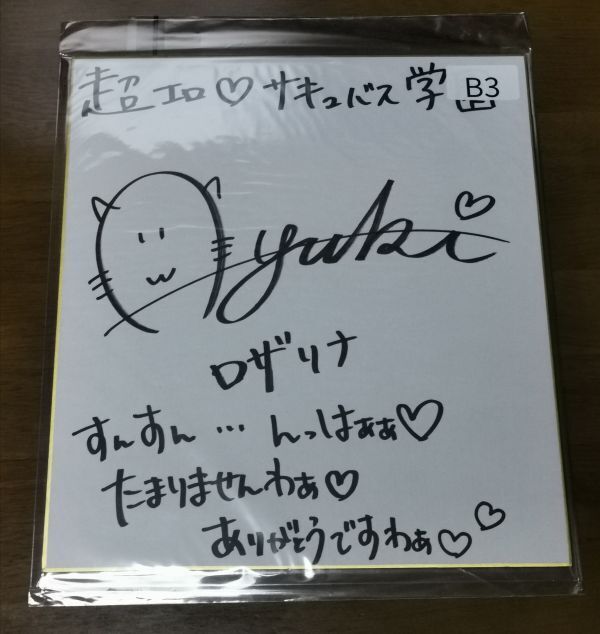 超エロ♡サキュバス学園
B3
Ayuki♡
ロザリナ
すんすん…んっはぁぁ♡
たまりませんわぁ♡
ありがとうですわぁ♡♡